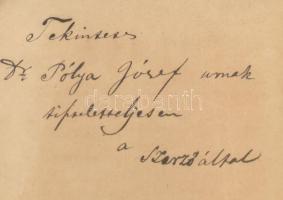 Tekintetes
Dr. Pólya József urnak
tiszteletteljesen
a
Szerző által